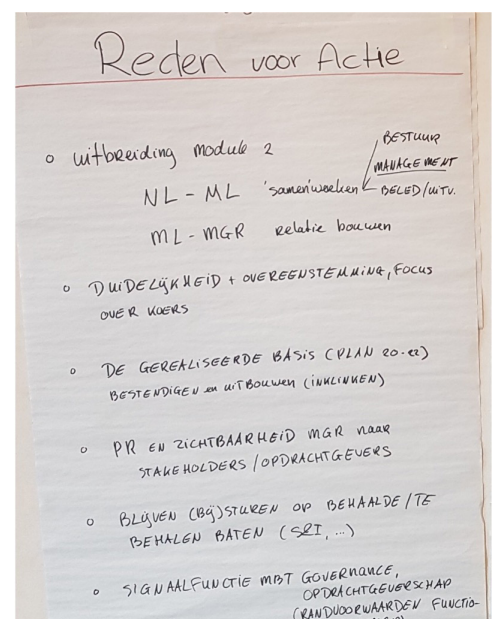 Reden voor Actie
o uitbreiding module 2
BESTUUR
MANAGEMENT
NL - ML 'samen'werken BELED/UITV.
ML - MGR relatie bouwen
o DUIDELIJKHEID + OVEREENSTEMMING, FOCUS
OVER KOERS
o DE GEREALISEERDE BASIS (PLAN 20-22)
BESTENDIGEN en UITBOUWEN (INKLINKEN)
o PR EN ZICHTBAARHEID MGR naar
STAKEHOLDERS / OPDRACHTGEVERS
o BLIJVEN (BIJ)STUREN OP BEHAALDE / TE
BEHALEN BATEN (SRI, ...)
o SIGNAALFUNCTIE MBT GOVERNANCE,
OPDRACHTGEVERSCHAP
(RANDVOORWAARDEN FUNCTIO-